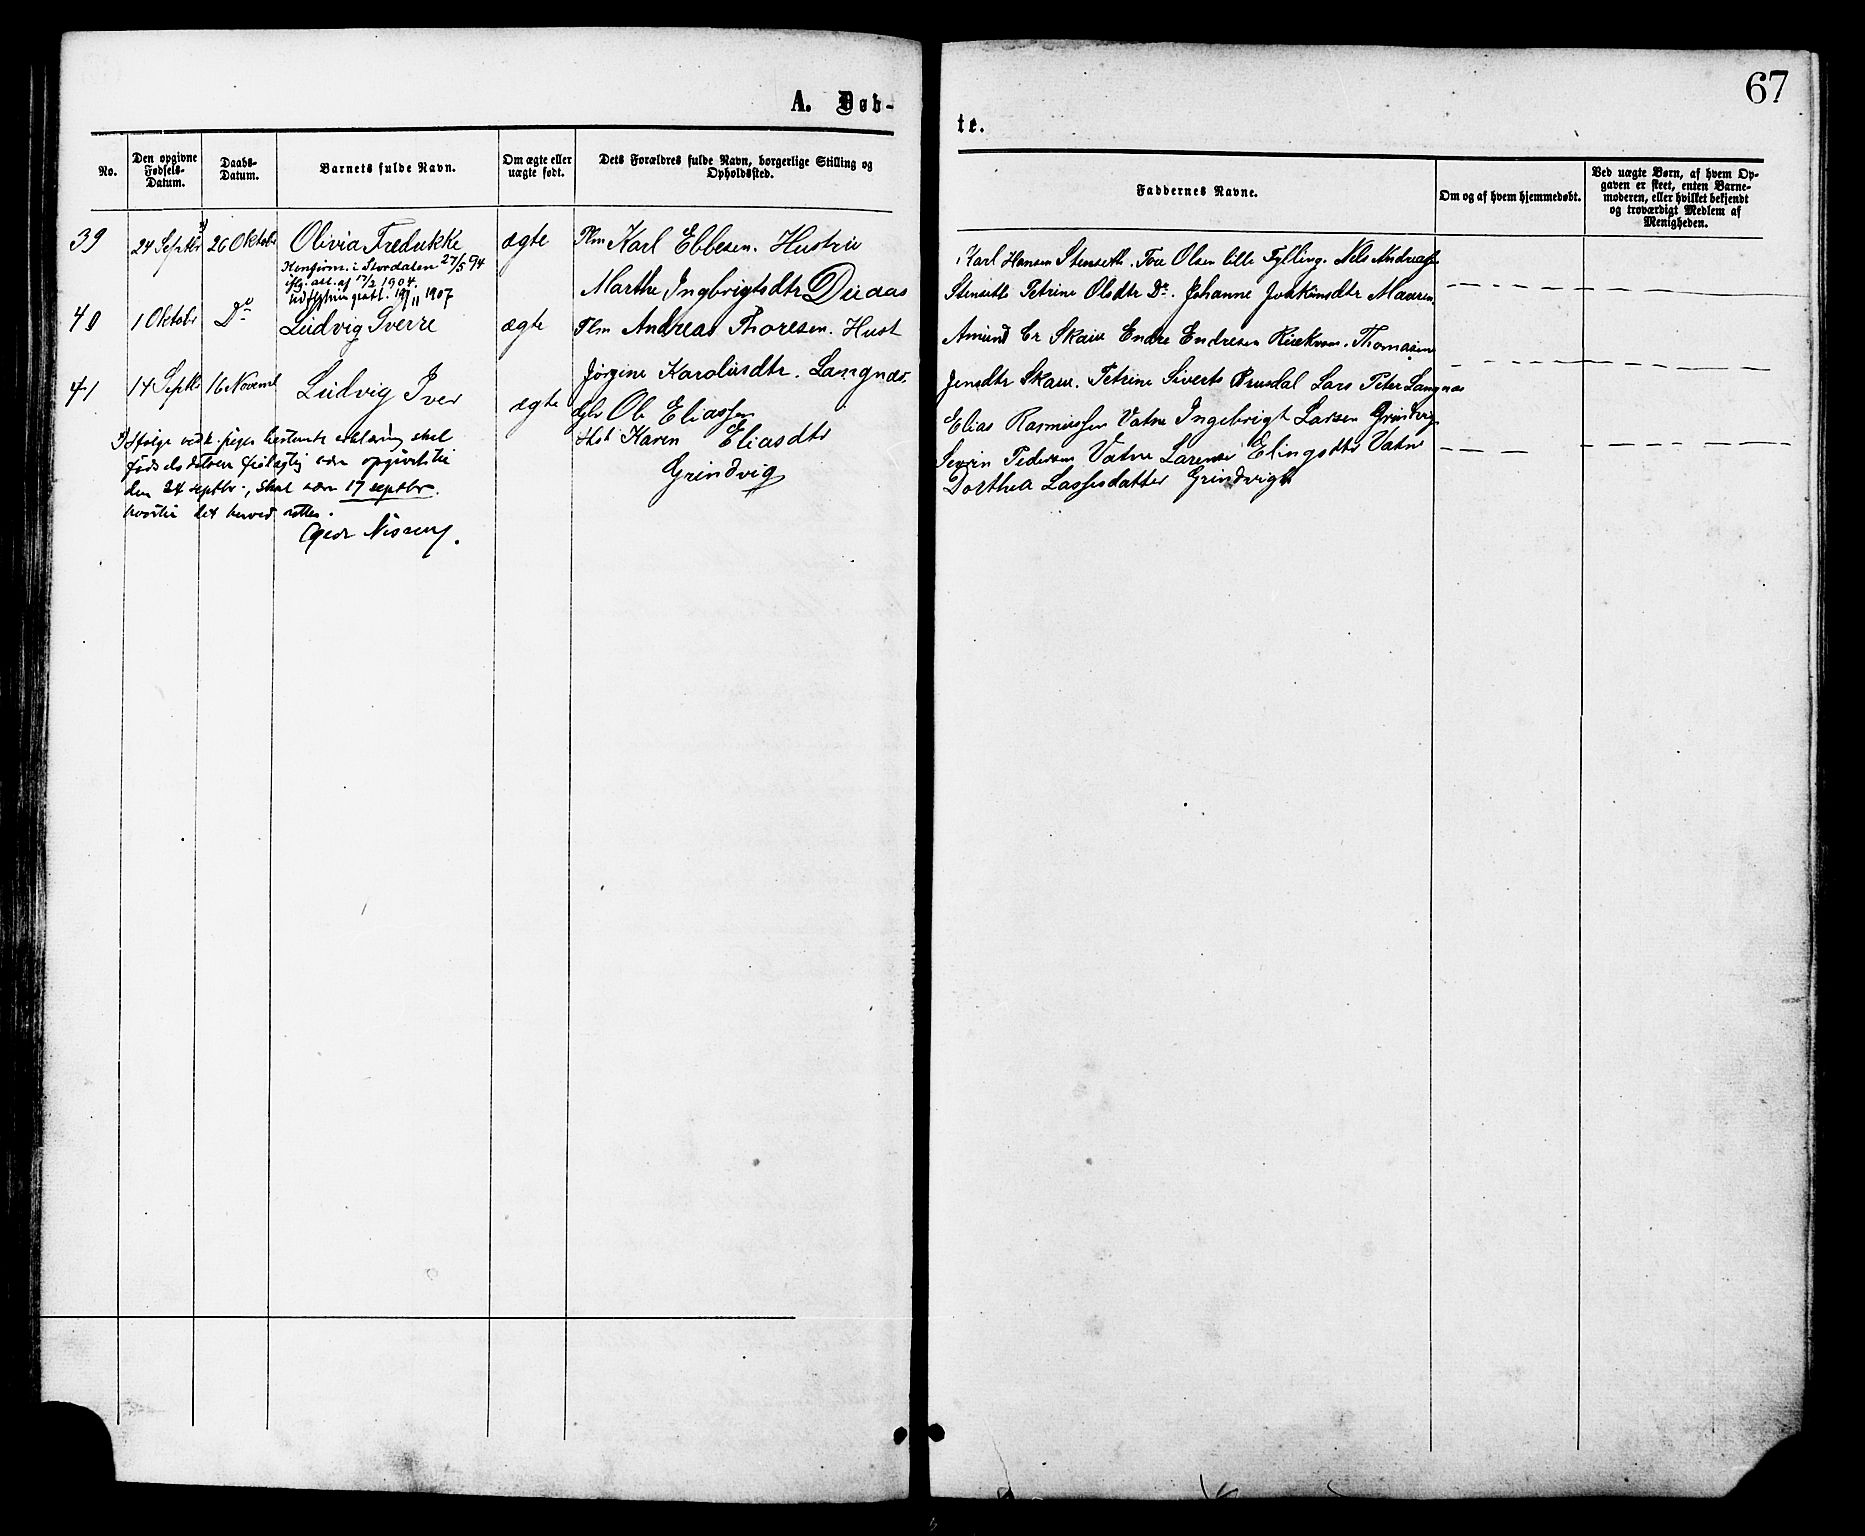 67
A. Døb-
te.
No.
Den opgivne Fødsels-Datum.
Daabs-Datum.
Barnets fulde Navn.
Om ægte eller uægte født.
Dets Forældres fulde Navn, borgerlige Stilling og Opholdssted.
Faddernes Navne.
Om og af hvem hjemmedøbt.
Ved uægte Børn, af hvem Op-
gaven er skeet, enten Barne-
moderen, eller hvilket bekjendt
og troværdigt Medlem af
Menigheden.
39 24 Septbr 26 Oktobr Olivia Fredrikke ægte Plm Karl Ebbesen. Hustru
Konfirm. i Stordalen 27/5 94
ifg. att. af 17/2 1904.
Marthe Ingbrigtsdtr Duaas
Karl Hansen Stenseth. Tore Olsen lille Fylling. Nels Andreas
Stenseth Petrine Olsdtr Do. Johanne Joakimsdtr Maaren
40 1 Oktobr Do Ludvig Sverre ægte Plm Andreas Thoresen. Hust
Jörgine Karolusdtr. Langnæs.
Amund Er Skaue Endre Endresen Thomasine
Jensdtr Skaue. Petrine Siverts Brusdal Lars Peter Langnæs
41 14 Septbr 16 Novembr Ludvig Iver ægte Ole Eliassen
Hst Karen Eliasdtr
Grindvig
Elias Rasmussen Vatne Ingebrigt Larsen Grindvig
Severin Pedersen Vatne Larense Elingsdtr Vatne
Dorthea Lassesdatter Grindvig
Ifølge pigens bestemte erklæring skal
fødselsdatoen feilagtig være opgivet til
den 24 septbr., skal være 17 septbr.
hvortil det herved rettes.
Nissen.